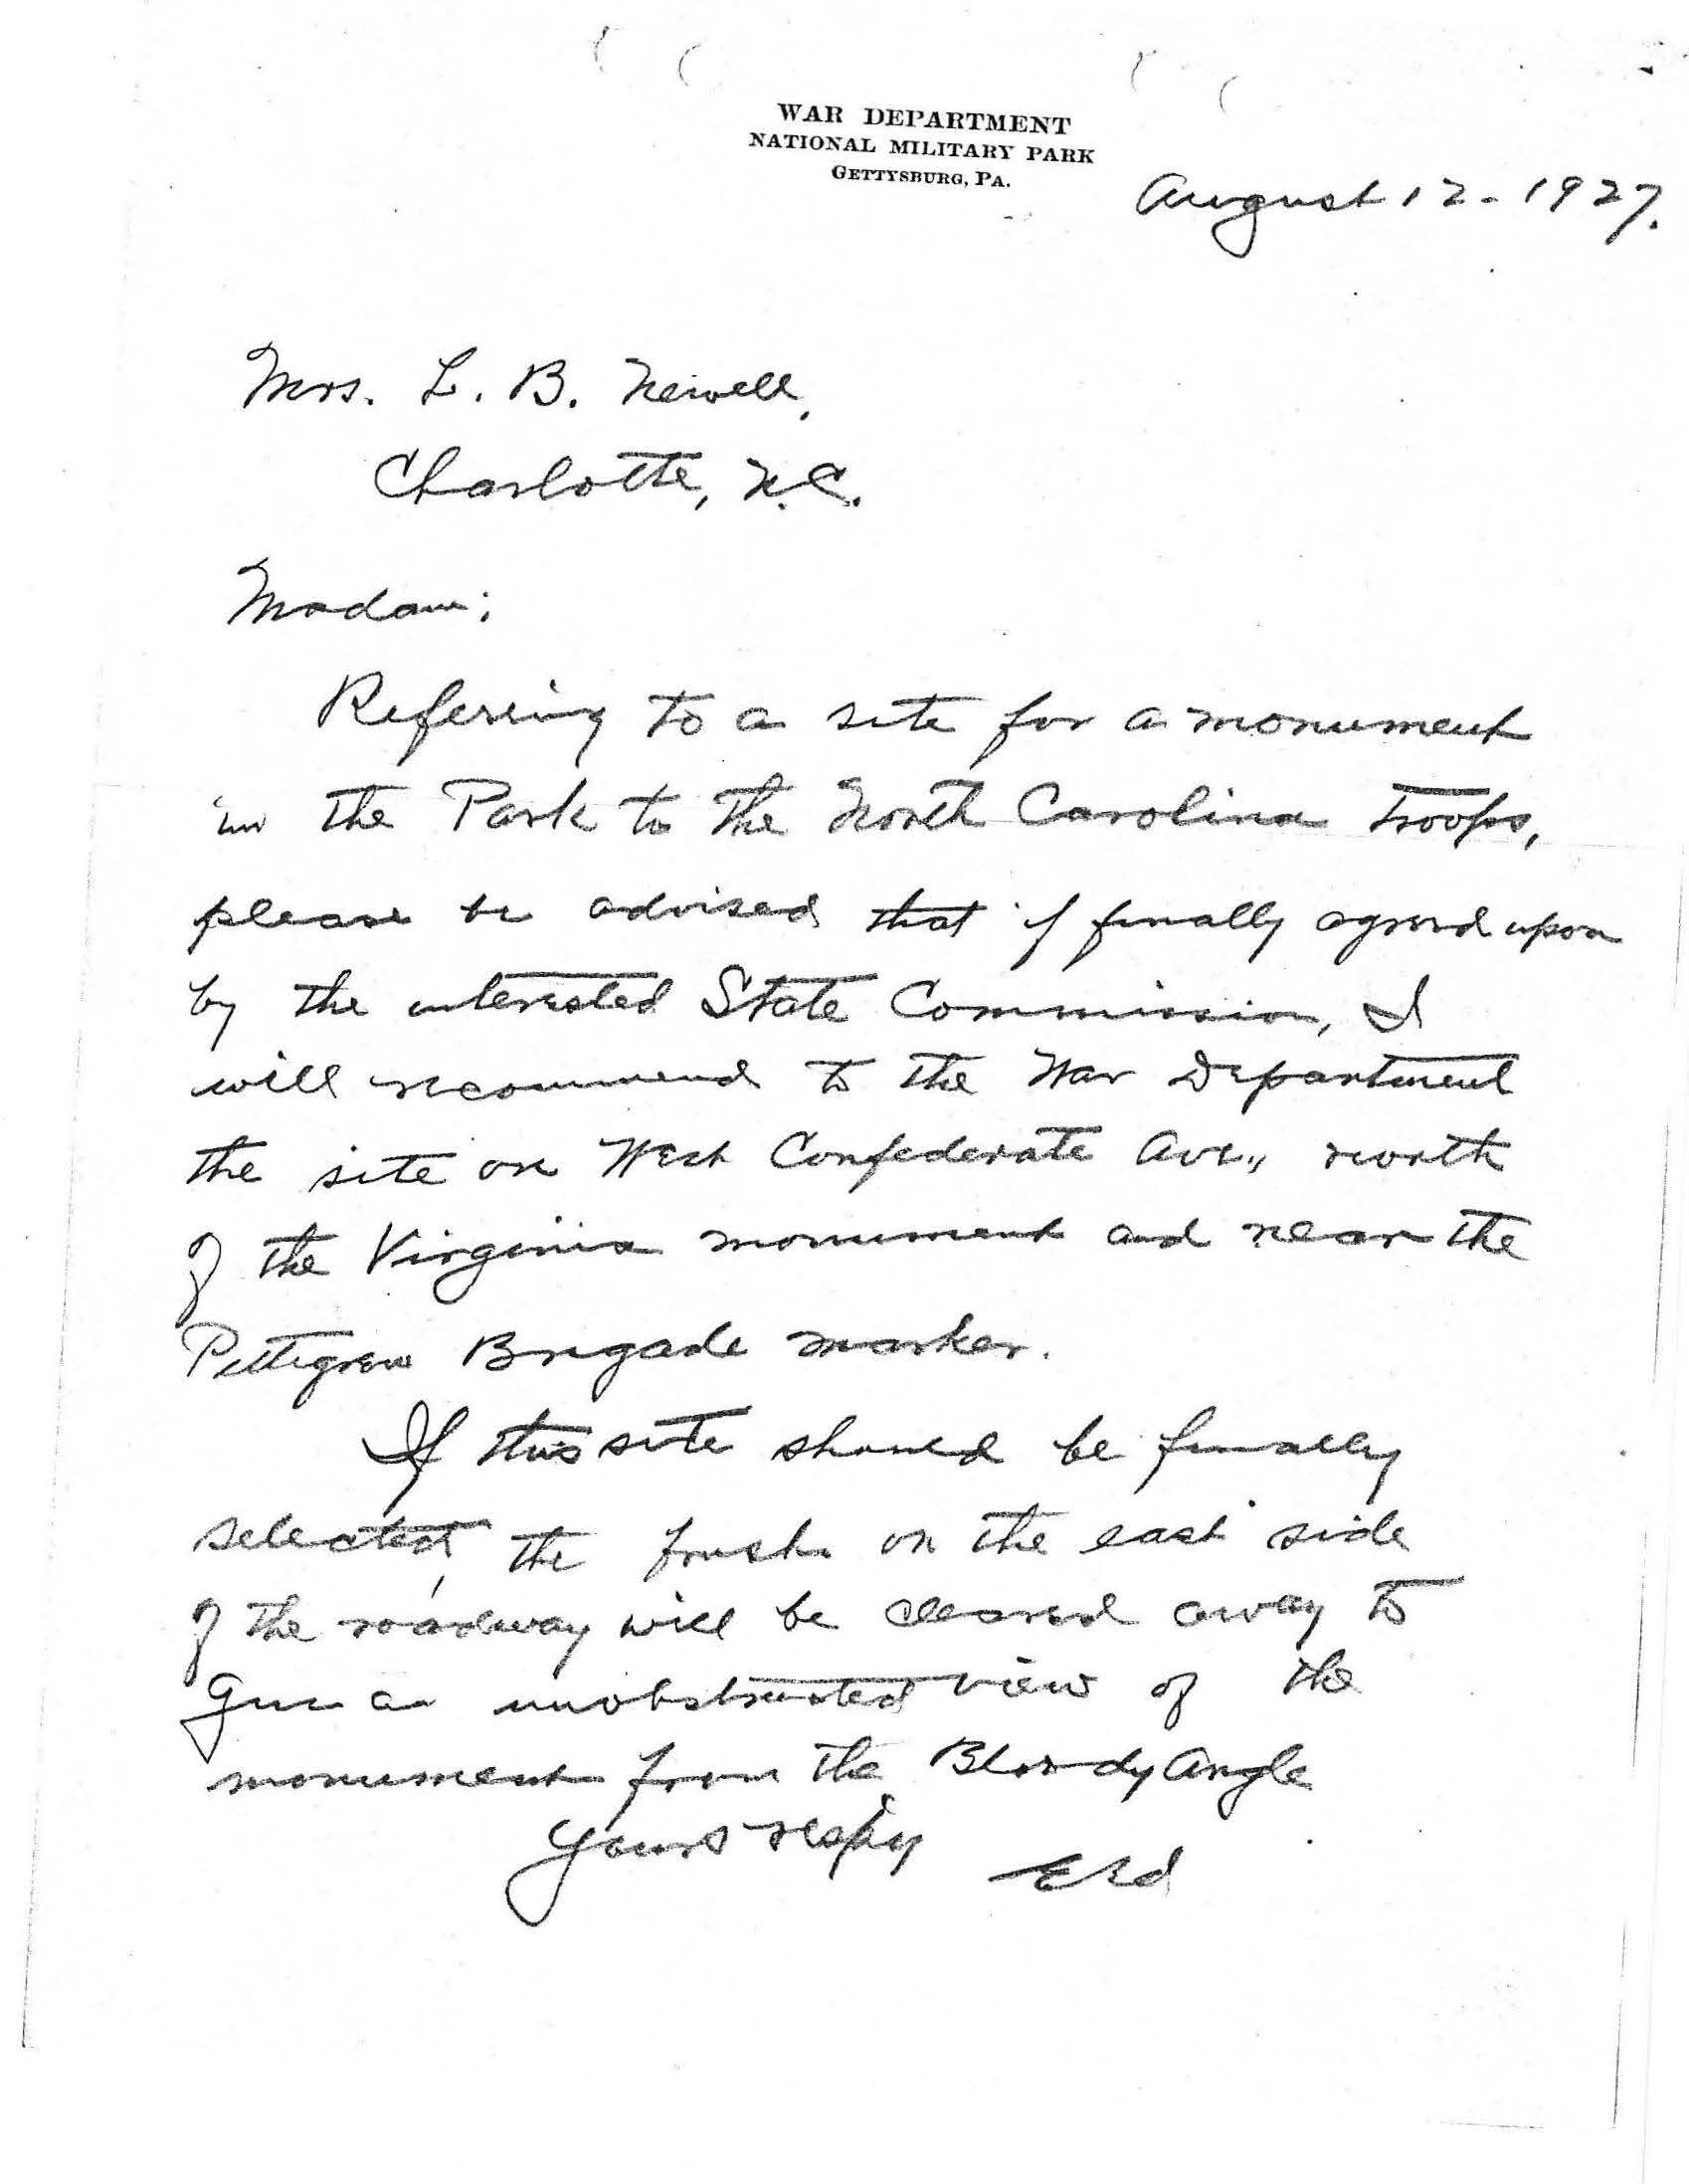 WAR DEPARTMENT
NATIONAL MILITARY PARK
GETTYSBURG, PA.
August 12 - 1927.
Mrs. L. B. Newell,
Charlotte, N.C.
Madam:
Refering to a site for a monument
in the Park to the North Carolina Troops,
please be advised that if finally agreed upon
by the interested State Commission, I
will recommend to the War Department
the site on West Confederate Ave., north
of the Virginia monument and near the
Pettigrew Brigade marker.
If this site should be finally
selected, the on the east side
of the roadway will be cleared away to
give an unobstructed view of the
monument from the Bloody Angle
Yours resp'y